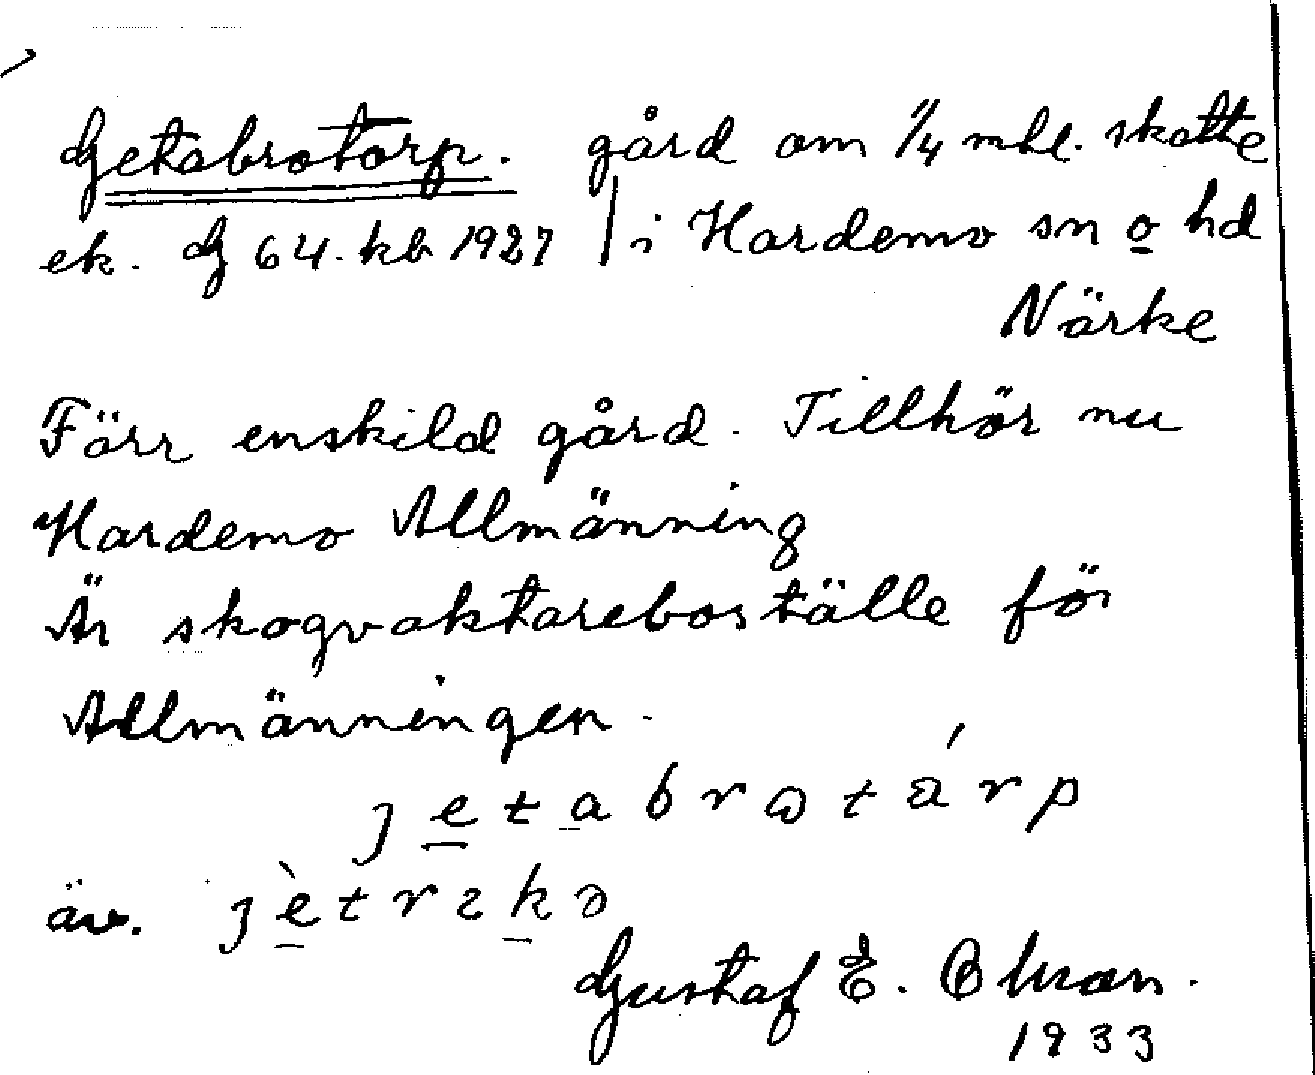 Getabrotorp. gård om 1/4 mtl. skatte
ek. G 64. kb 1927 | i Hardemo sn o hd
Närke
Förr enskild gård. Tillhör nu
Hardemo Allmänning
Är skogvaktareboställe för
Allmänningen.
jetabrωtárp
äv. jètrskə
Gustaf E. Olsson.
1933